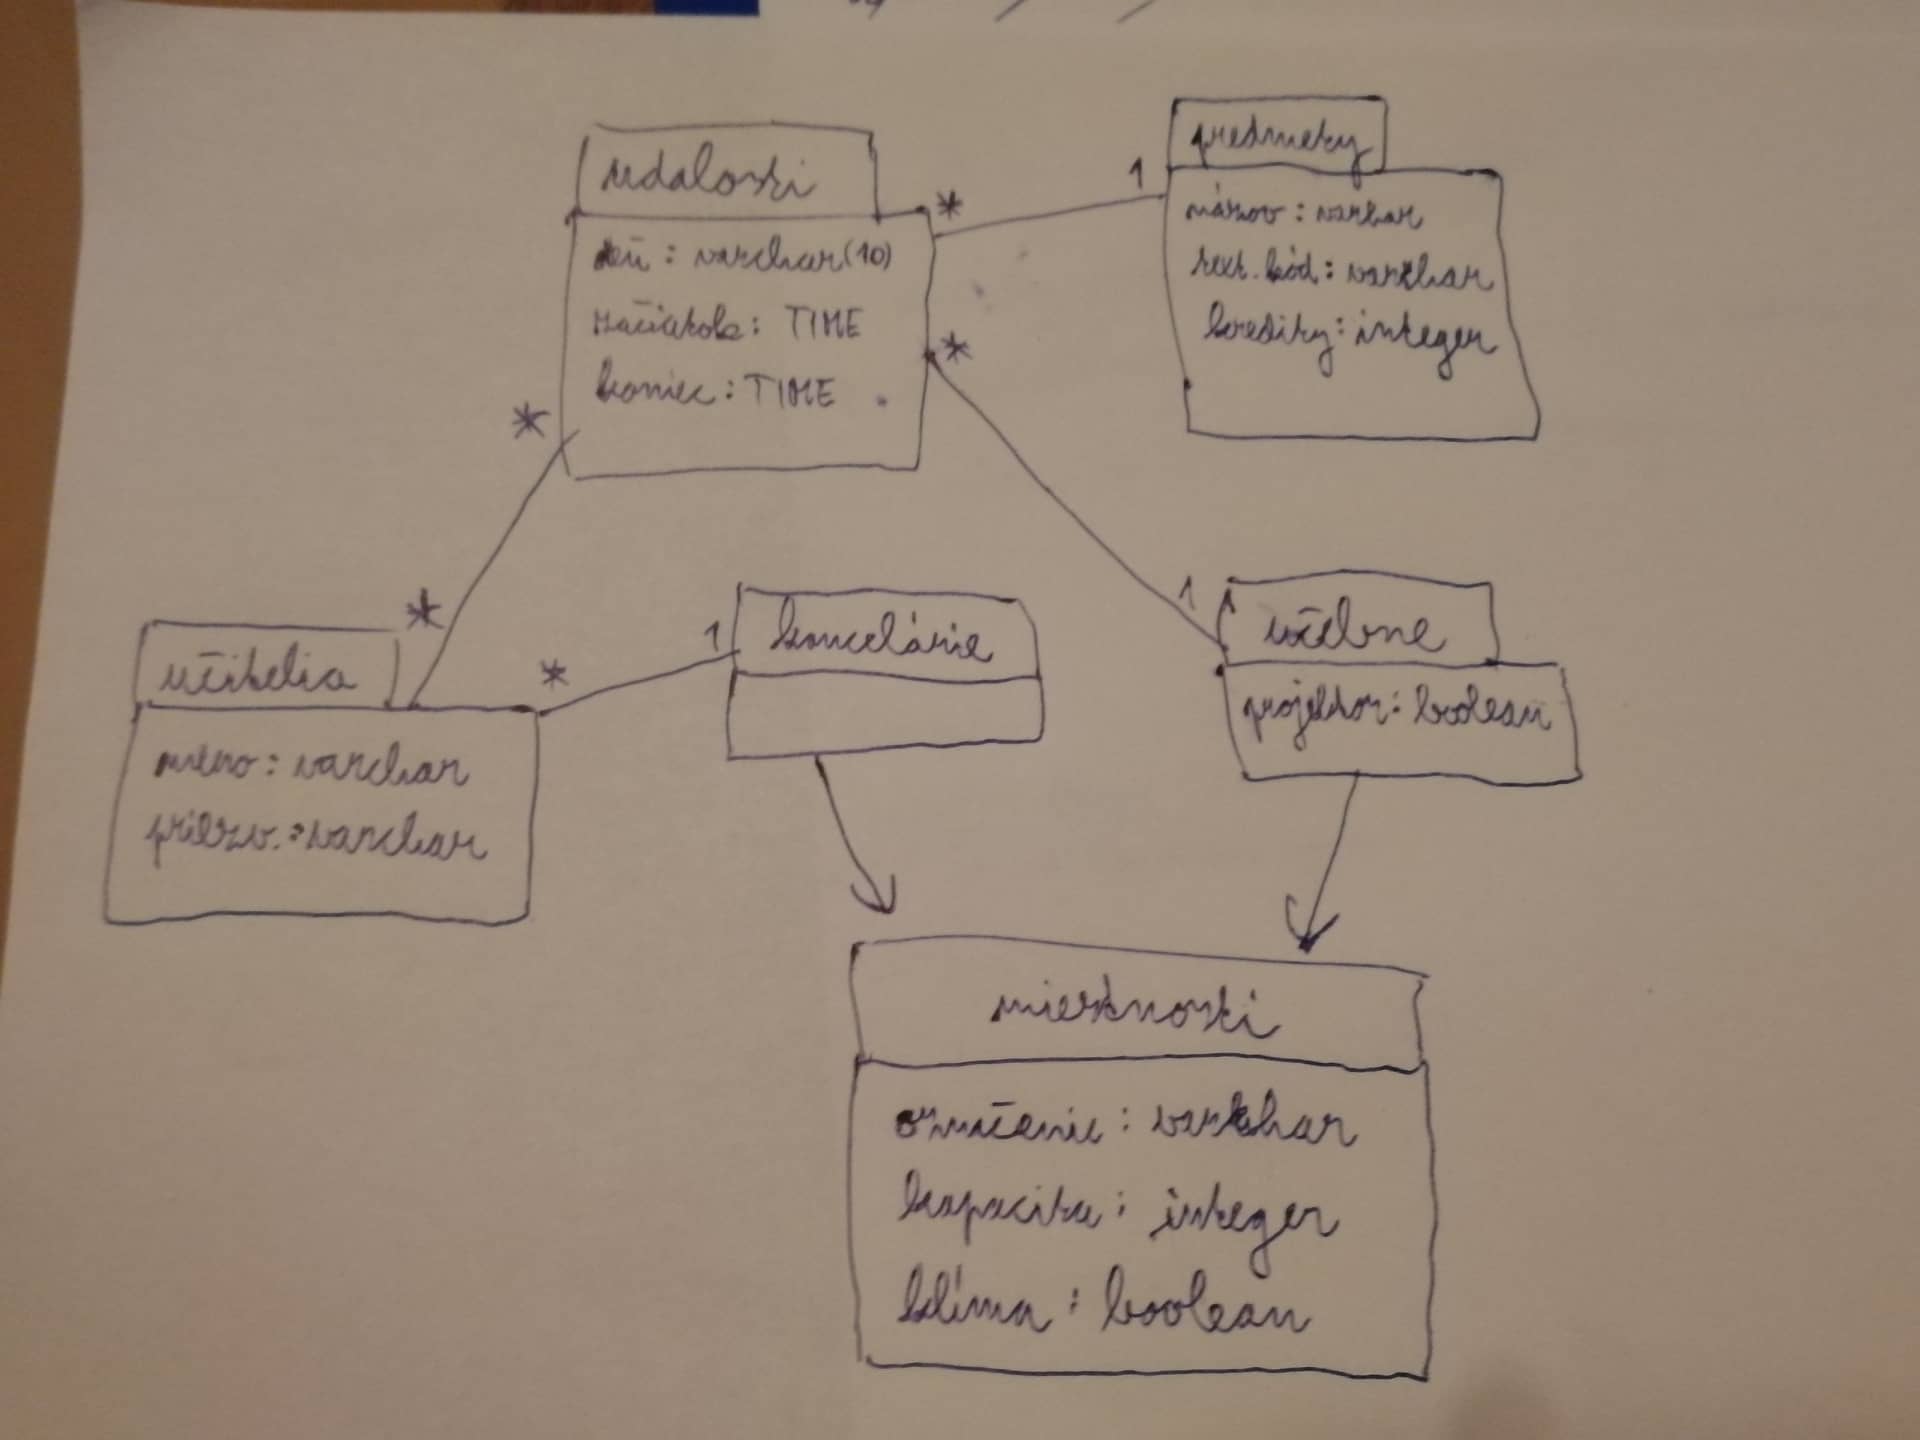 udalosti
deň : varchar(10)
začiatok : TIME
koniec : TIME
*
*
*
1
predmety
názov : varchar
text. kód : varchar
kredity : integer
*
učitelia
meno : varchar
priezv. : varchar
*
1
kancelárie
1
učebne
projektor : boolean
miestnosti
označenie : varchar
kapacita : integer
klíma : boolean